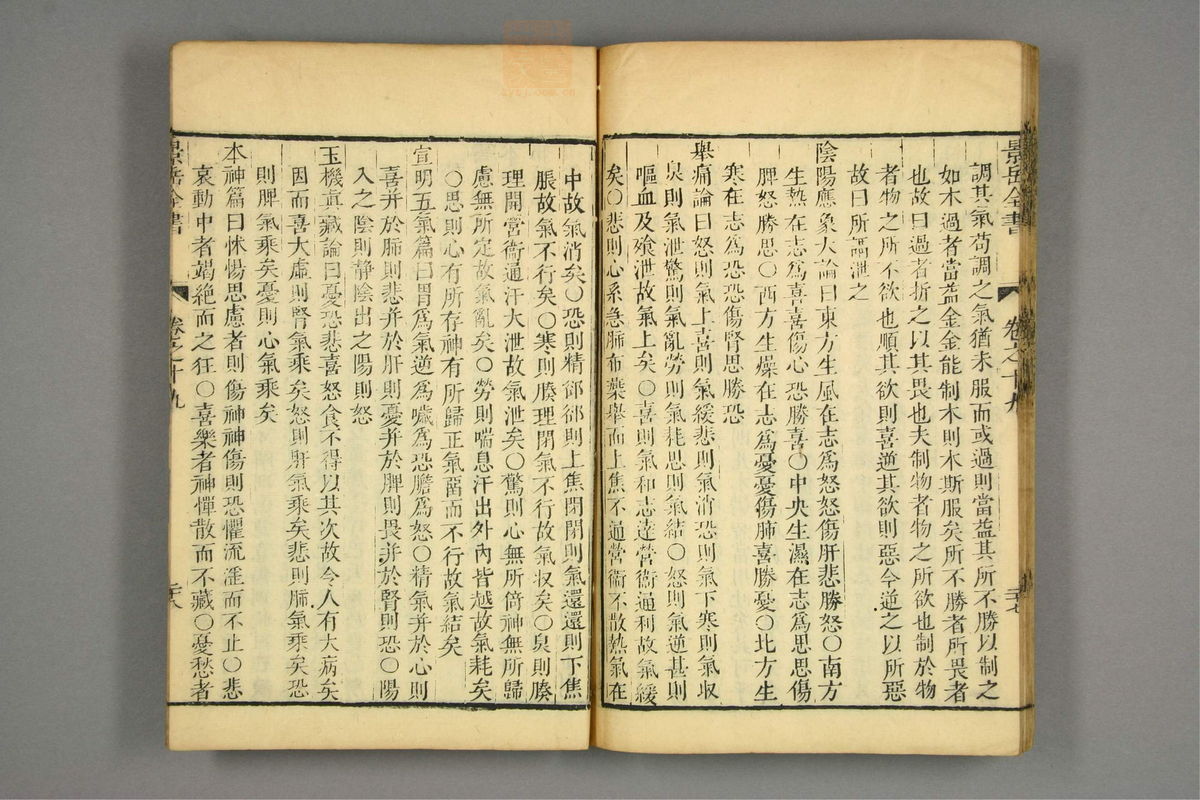 景岳全書
卷之十九
調其氣苟調之氣猶未服而或過則當益其所不勝以制之
如木過者當益金金能制木則木斯服矣所不勝者所畏者
也故曰過者折之以其畏也夫制物者物之所欲也制於物
者物之所不欲也順其欲則喜逆其欲則惡今逆之以所惡
故曰所謂泄之
陰陽應象大論曰東方生風在志爲怒怒傷肝悲勝怒○南方
生熱在志爲喜喜傷心恐勝喜○中央生濕在志爲思思傷
脾怒勝思○西方生燥在志爲憂憂傷肺喜勝憂○北方生
寒在志爲恐恐傷腎思勝恐
舉痛論曰怒則氣上喜則氣緩悲則氣消恐則氣下寒則氣収
炅則氣泄驚則氣亂勞則氣耗思則氣結○怒則氣逆甚則
嘔血及飱泄故氣上矣○喜則氣和志達營衞通利故氣緩
矣○悲則心系急肺布葉舉而上焦不通營衞不散熱氣在
中故氣消矣○恐則精郤郤則上焦閉閉則氣還還則下焦
脹故氣不行矣○寒則腠理閉氣不行故氣収矣○炅則腠
理開營衞通汗大泄故氣泄矣○驚則心無所倚神無所歸
慮無所定故氣亂矣○勞則喘息汗出外內皆越故氣耗矣
○思則心有所存神有所歸正氣畱而不行故氣結矣
宣明五氣篇曰胃爲氣逆爲噦爲恐膽爲怒○精氣并於心則
喜并於肺則悲并於肝則憂并於脾則畏并於腎則恐○陽
入之陰則静陰出之陽則怒
玉機真藏論曰憂恐悲喜怒食不得以其次故令人有大病矣
因而喜大虛則腎氣乘矣怒則肝氣乘矣悲則肺氣乘矣恐
則脾氣乘矣憂則心氣乘矣
本神篇曰怵惕思慮者則傷神神傷則恐懼流淫而不止○悲
哀動中者竭絶而之狂○喜樂者神憚散而不藏○憂愁者
景岳全書
卷之十九